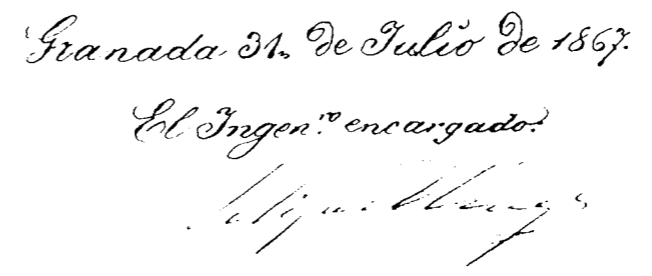 Granada 31 de Julio de 1867.
El Ingen.ro encargado.